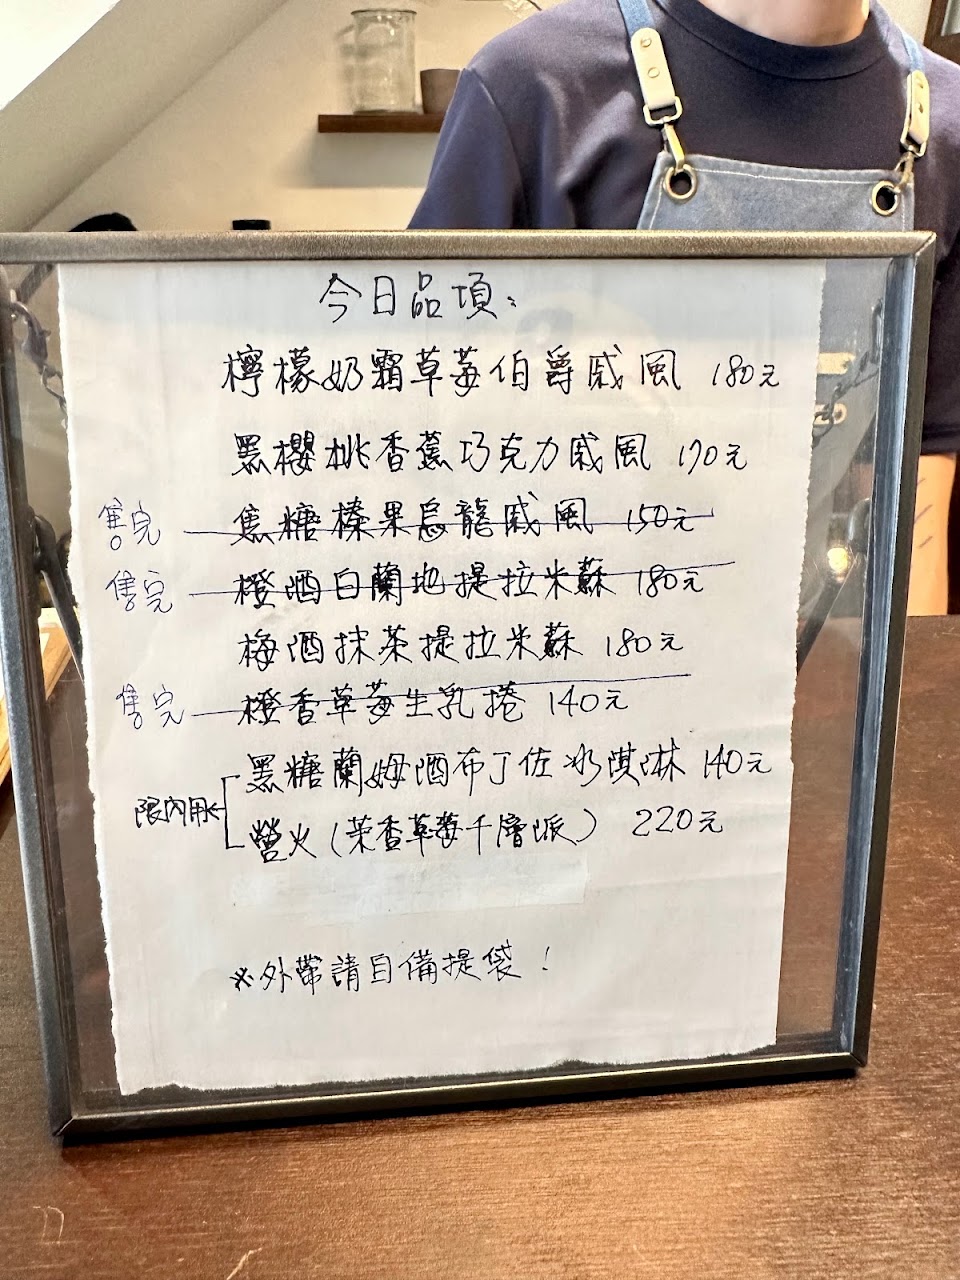 今日品項：
檸檬奶霜草莓伯爵戚風 180元
黑櫻桃香蕉巧克力戚風 170元
售完 焦糖榛果烏龍戚風 150元
售完 橙酒白蘭地提拉米蘇 180元
梅酒抹茶提拉米蘇 180元
售完 橙香草莓生乳捲 140元
黑糖蘭姆酒布丁佐冰淇淋 140元
限內用
螢火（茶香草莓千層派） 220元
※外帶請自備提袋！